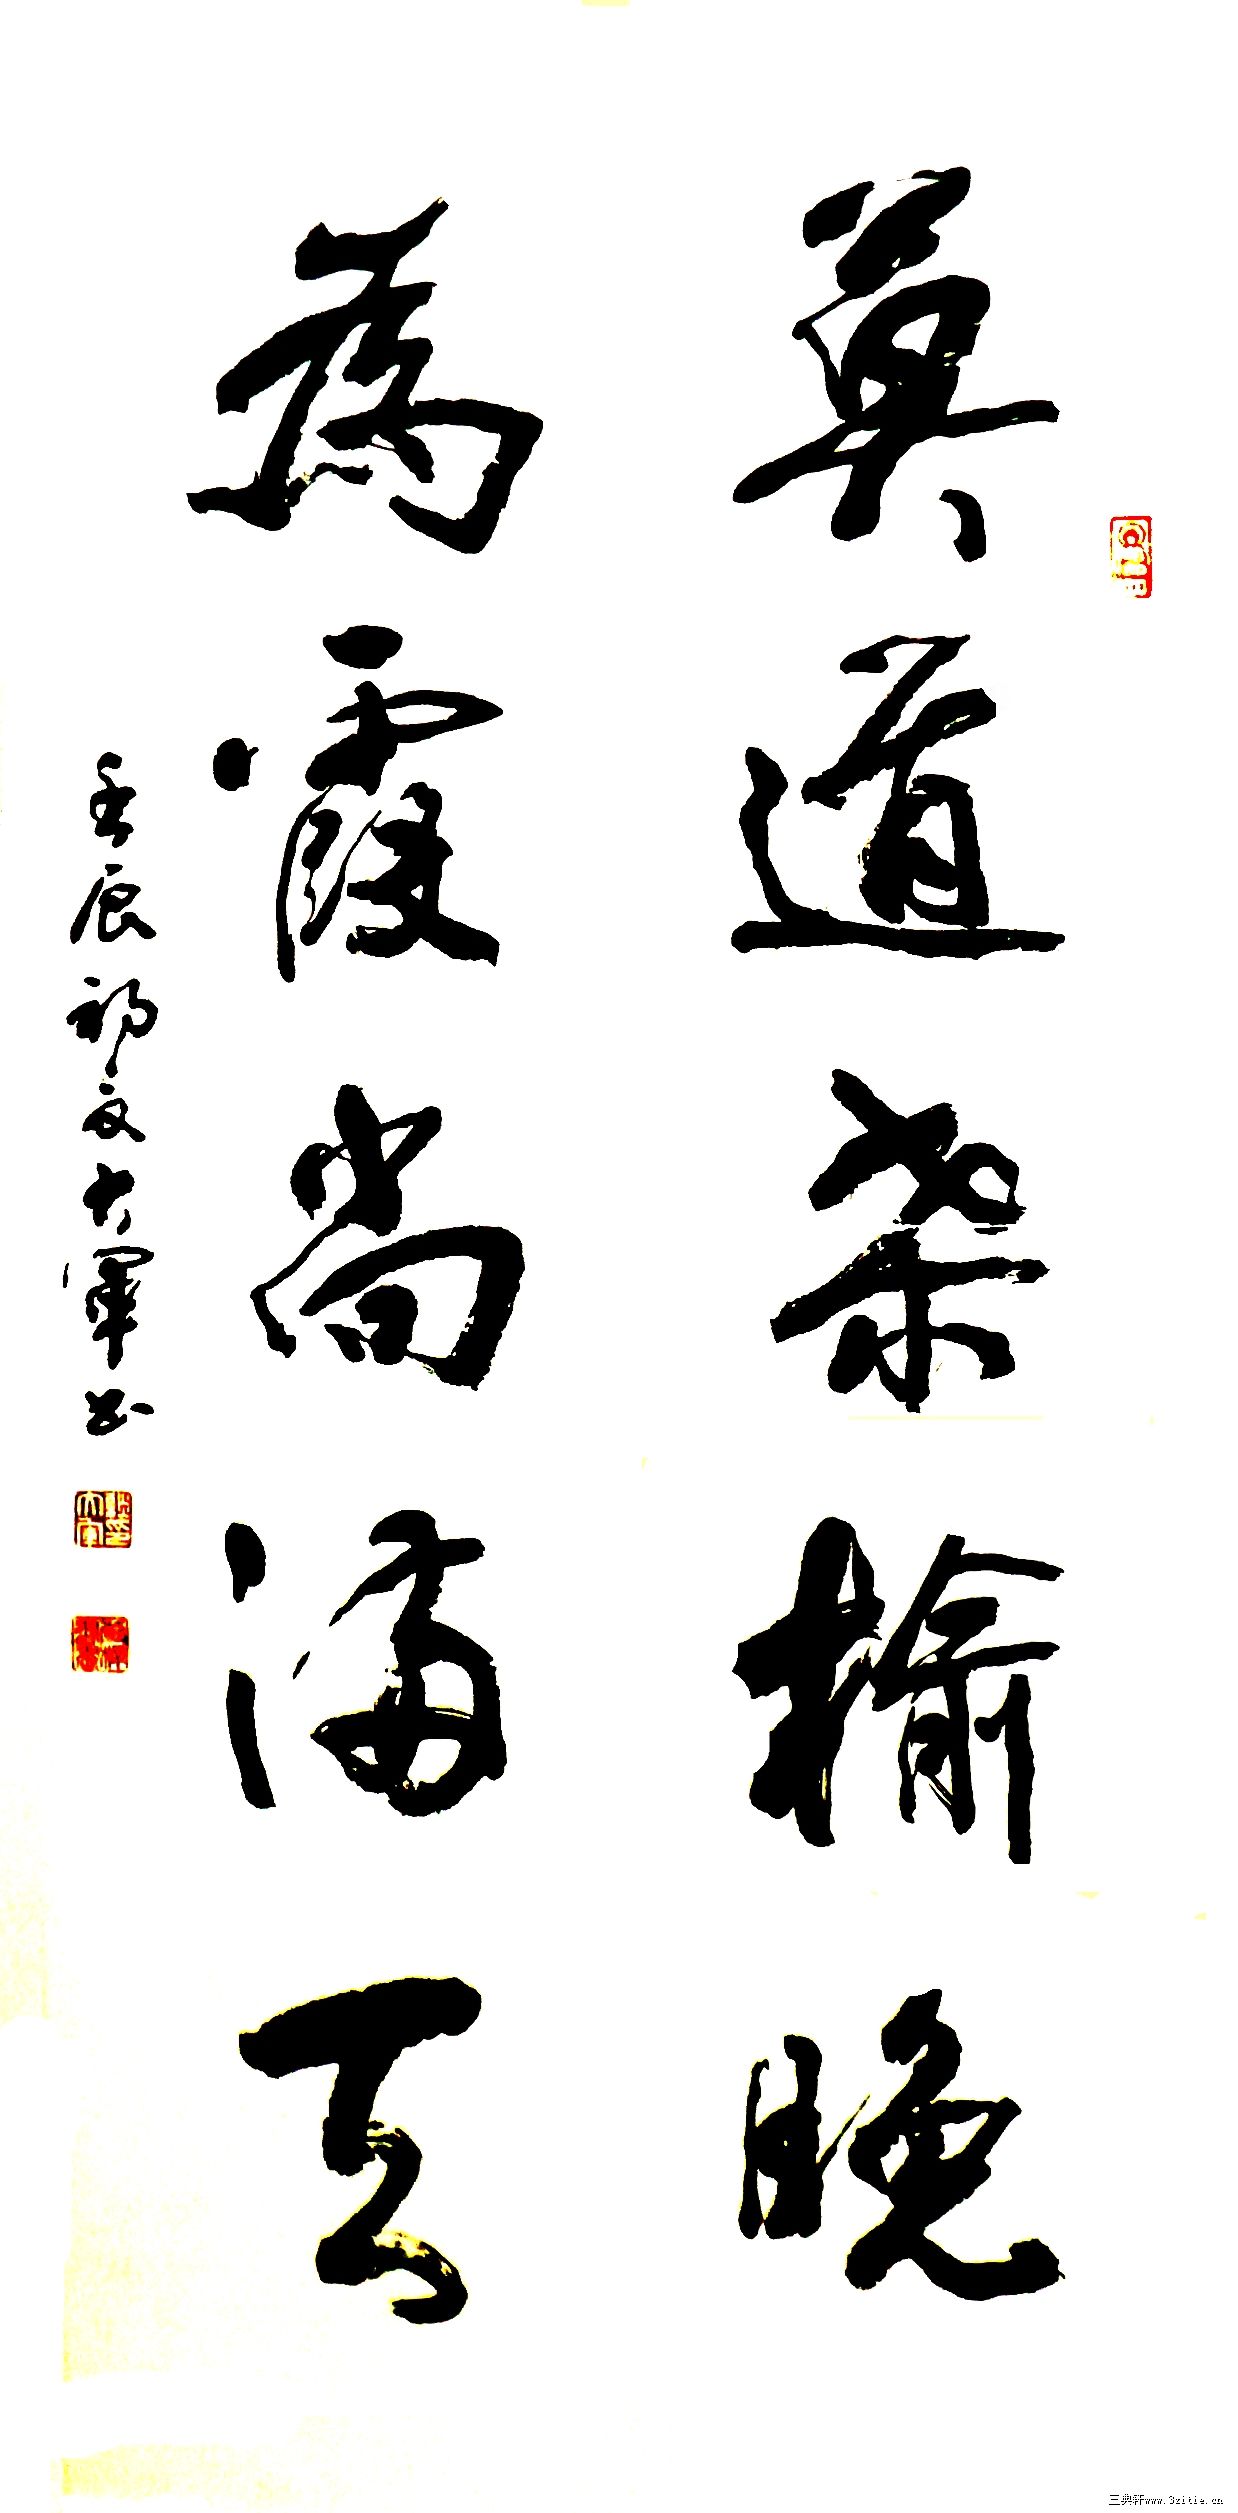 莫道桑榆晚
為霞尚滿天
壬辰初夏大軍書
三典轩www.3zitie.cn